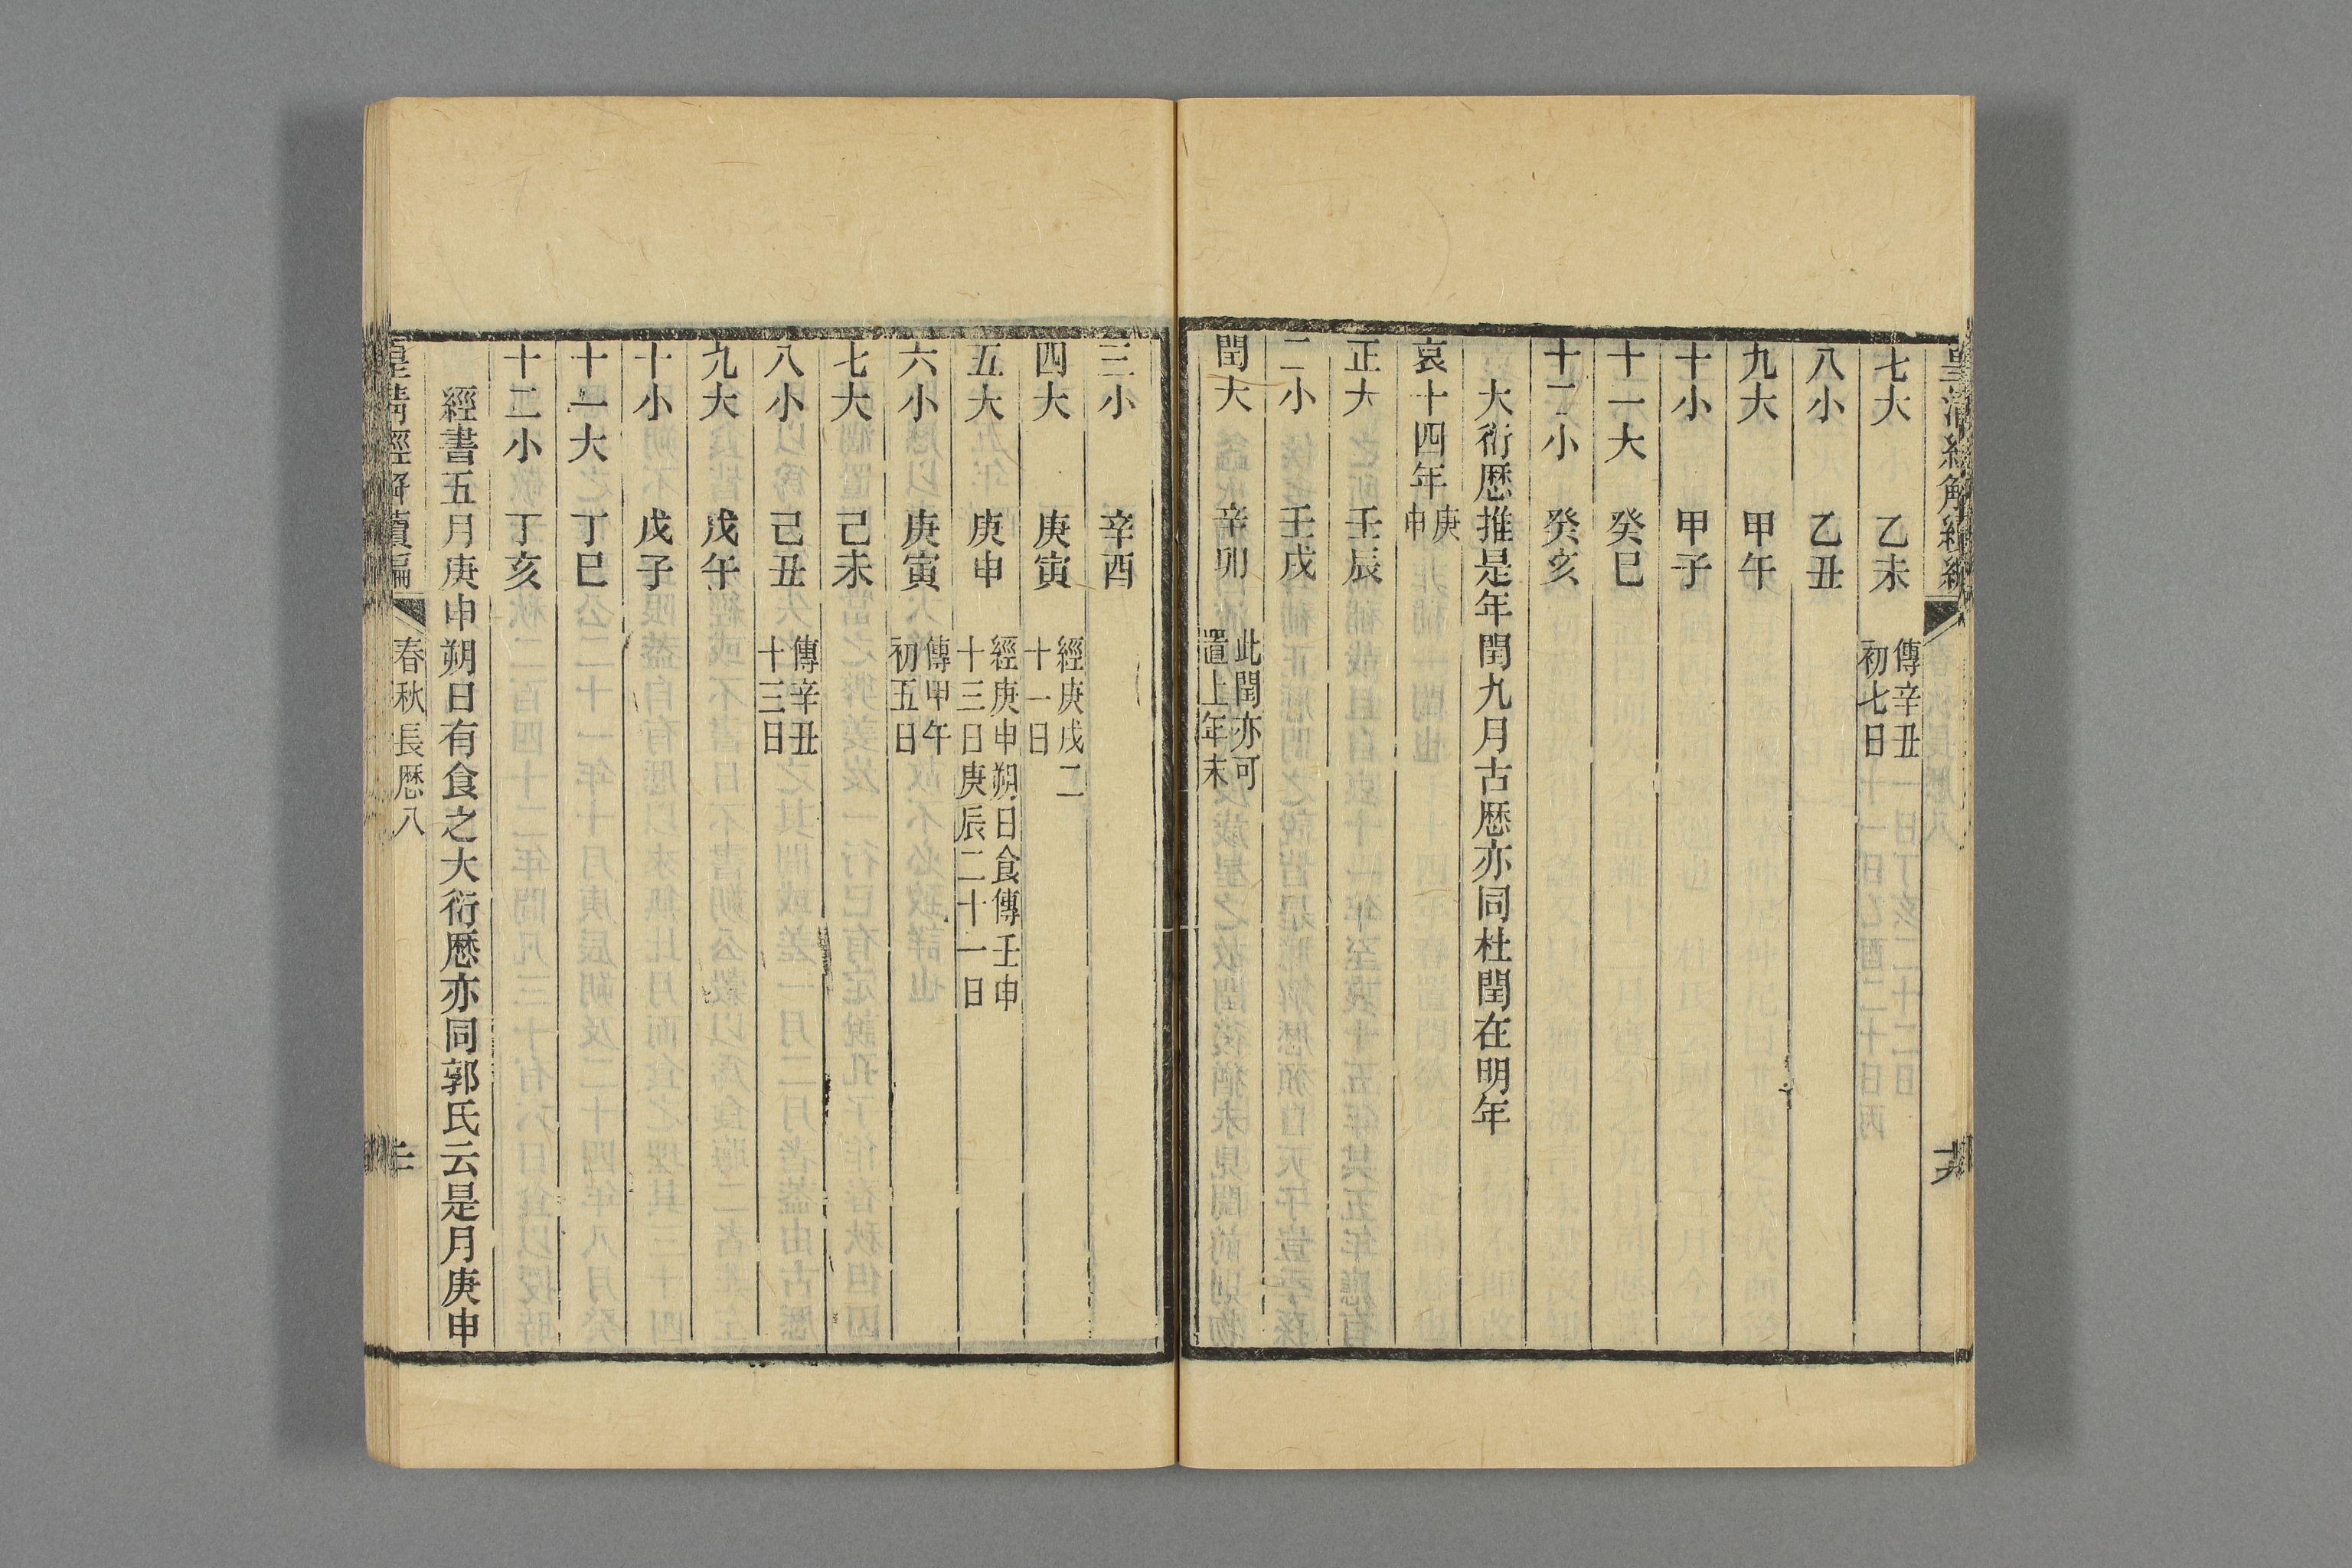 七大 乙未 傳辛丑初七日
八小 乙丑
九大 甲午
十小 甲子
十一大 癸巳
十二小 癸亥
大衍厯推是年閏九月古厯亦同杜閏在明年
哀十四年庚申
正大 壬辰
二小 壬戌
閏大 辛卯 此閏亦可置上年末
三小 辛酉
四大 庚寅 經庚戌二十一日
五大 庚申 經庚申朔日食傳壬申十三日庚辰二十一日
六小 庚寅 傳甲午初五日
七大 己未
八小 己丑 傳辛丑十三日
九大 戊午
十小 戊子
十一大 丁巳
十二小 丁亥
經書五月庚申朔日有食之大衍厯亦同郭氏云是月庚申
皇清經解續編 春秋長厯八